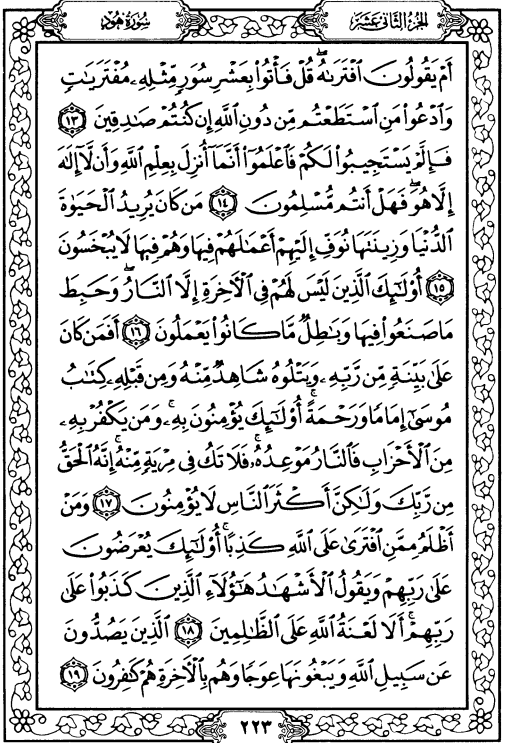 سُورَةُ هُودٍ
الجُزْءُ الثَّانِي عَشَر
أَمْ يَقُولُونَ ٱفْتَرَىٰهُ ۖ قُلْ فَأْتُوا۟ بِعَشْرِ سُوَرٍ مِّثْلِهِۦ مُفْتَرَيَٰتٍ
وَٱدْعُوا۟ مَنِ ٱسْتَطَعْتُم مِّن دُونِ ٱللَّهِ إِن كُنتُمْ صَٰدِقِينَ ١٣
فَإِلَّمْ يَسْتَجِيبُوا۟ لَكُمْ فَٱعْلَمُوٓا۟ أَنَّمَآ أُنزِلَ بِعِلْمِ ٱللَّهِ وَأَن لَّآ إِلَٰهَ
إِلَّا هُوَ ۖ فَهَلْ أَنتُم مُّسْلِمُونَ ١٤ مَن كَانَ يُرِيدُ ٱلْحَيَوٰةَ
ٱلدُّنْيَا وَزِينَتَهَا نُوَفِّ إِلَيْهِمْ أَعْمَٰلَهُمْ فِيهَا وَهُمْ فِيهَا لَا يُبْخَسُونَ
١٥ أُو۟لَٰٓئِكَ ٱلَّذِينَ لَيْسَ لَهُمْ فِى ٱلْءَاخِرَةِ إِلَّا ٱلنَّارُ ۖ وَحَبِطَ
مَا صَنَعُوا۟ فِيهَا وَبَٰطِلٌ مَّا كَانُوا۟ يَعْمَلُونَ ١٦ أَفَمَن كَانَ
عَلَىٰ بَيِّنَةٍ مِّن رَّبِّهِۦ وَيَتْلُوهُ شَاهِدٌ مِّنْهُ وَمِن قَبْلِهِۦ كِتَٰبُ
مُوسَىٰٓ إِمَامًا وَرَحْمَةً ۚ أُو۟لَٰٓئِكَ يُؤْمِنُونَ بِهِۦ ۚ وَمَن يَكْفُرْ بِهِۦ
مِنَ ٱلْأَحْزَابِ فَٱلنَّارُ مَوْعِدُهُۥ ۚ فَلَا تَكُ فِى مِرْيَةٍ مِّنْهُ ۚ إِنَّهُ ٱلْحَقُّ
مِن رَّبِّكَ وَلَٰكِنَّ أَكْثَرَ ٱلنَّاسِ لَا يُؤْمِنُونَ ١٧ وَمَنْ
أَظْلَمُ مِمَّنِ ٱفْتَرَىٰ عَلَى ٱللَّهِ كَذِبًا ۚ أُو۟لَٰٓئِكَ يُعْرَضُونَ
عَلَىٰ رَبِّهِمْ وَيَقُولُ ٱلْأَشْهَٰدُ هَٰٓؤُلَآءِ ٱلَّذِينَ كَذَبُوا۟ عَلَىٰ
رَبِّهِمْ ۚ أَلَا لَعْنَةُ ٱللَّهِ عَلَى ٱلظَّٰلِمِينَ ١٨ ٱلَّذِينَ يَصُدُّونَ
عَن سَبِيلِ ٱللَّهِ وَيَبْغُونَهَا عِوَجًا وَهُم بِٱلْءَاخِرَةِ هُمْ كَٰفِرُونَ ١٩
٢٢٣